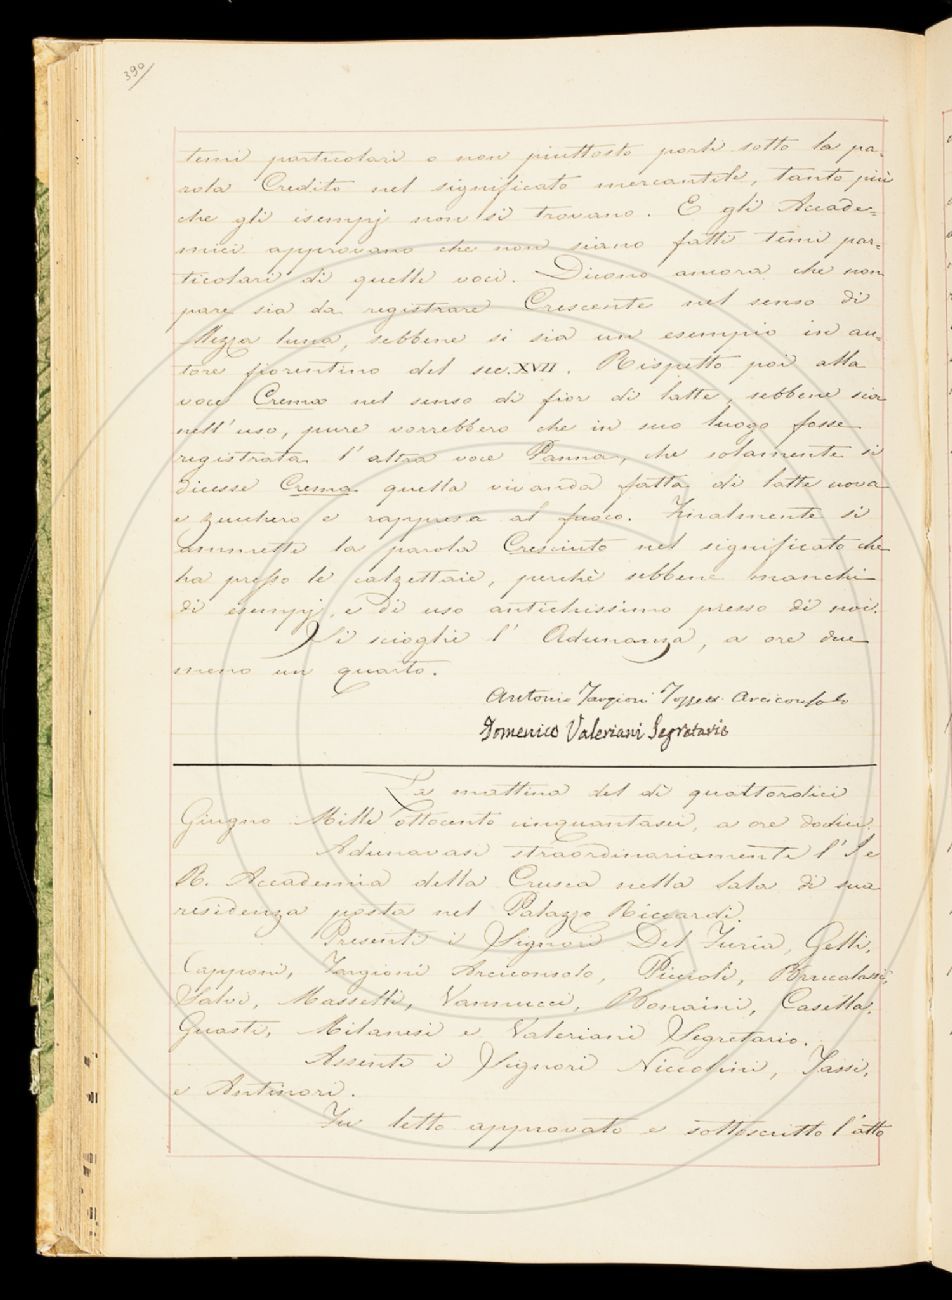 390
temi particolari o non piuttosto porli sotto la pa-
rola Credito nel significato mercantile, tanto più
che gli esempj non si trovano. E gli Accade-
mici approvano che non siano fatti temi par-
ticolari di quelle voci. Dicono ancora che non
pare sia da registrare Crescente nel senso di
Mezza luna, sebbene si sia un esempio in au-
tore fiorentino del sec. XVII. Rispetto poi alla
voce Crema nel senso di fior di latte, sebbene sia
nell' uso, pure vorrebbero che in suo luogo fosse
registrata l' altra voce Panna, che solamente si
dicesse Crema quella vivanda fatta di latte uova
e zucchero e rappresa al fuoco. Finalmente si
ammette la parola Cresciuto nel significato che
ha presso le calzettaie, perchè sebbene manchi
di esempj, è di uso antichissimo presso di noi.
Si scioglie l' Adunanza, a ore due
meno un quarto.
Antonio Targioni Tozzetti Arciconsolo
Domenico Valeriani Segretario
La mattina del dì quattordici
Giugno Mille ottocento cinquantasei, a ore dodici.
Adunavasi straordinariamente l' I. e
R. Accademia della Crusca nella Sala di sua
residenza posta nel Palazzo Riccardi.
Presenti i Signori Del Furia, Gelli,
Capponi, Targioni Arciconsolo, Piccioli, Brucalassi,
Salvi, Masselli, Vannucci, Bonaini, Casella,
Guasti, Milanesi e Valeriani Segretario.
Assenti i Signori Niccolini, Tassi,
e Antinori.
Fu letto approvato e sottoscritto l' atto